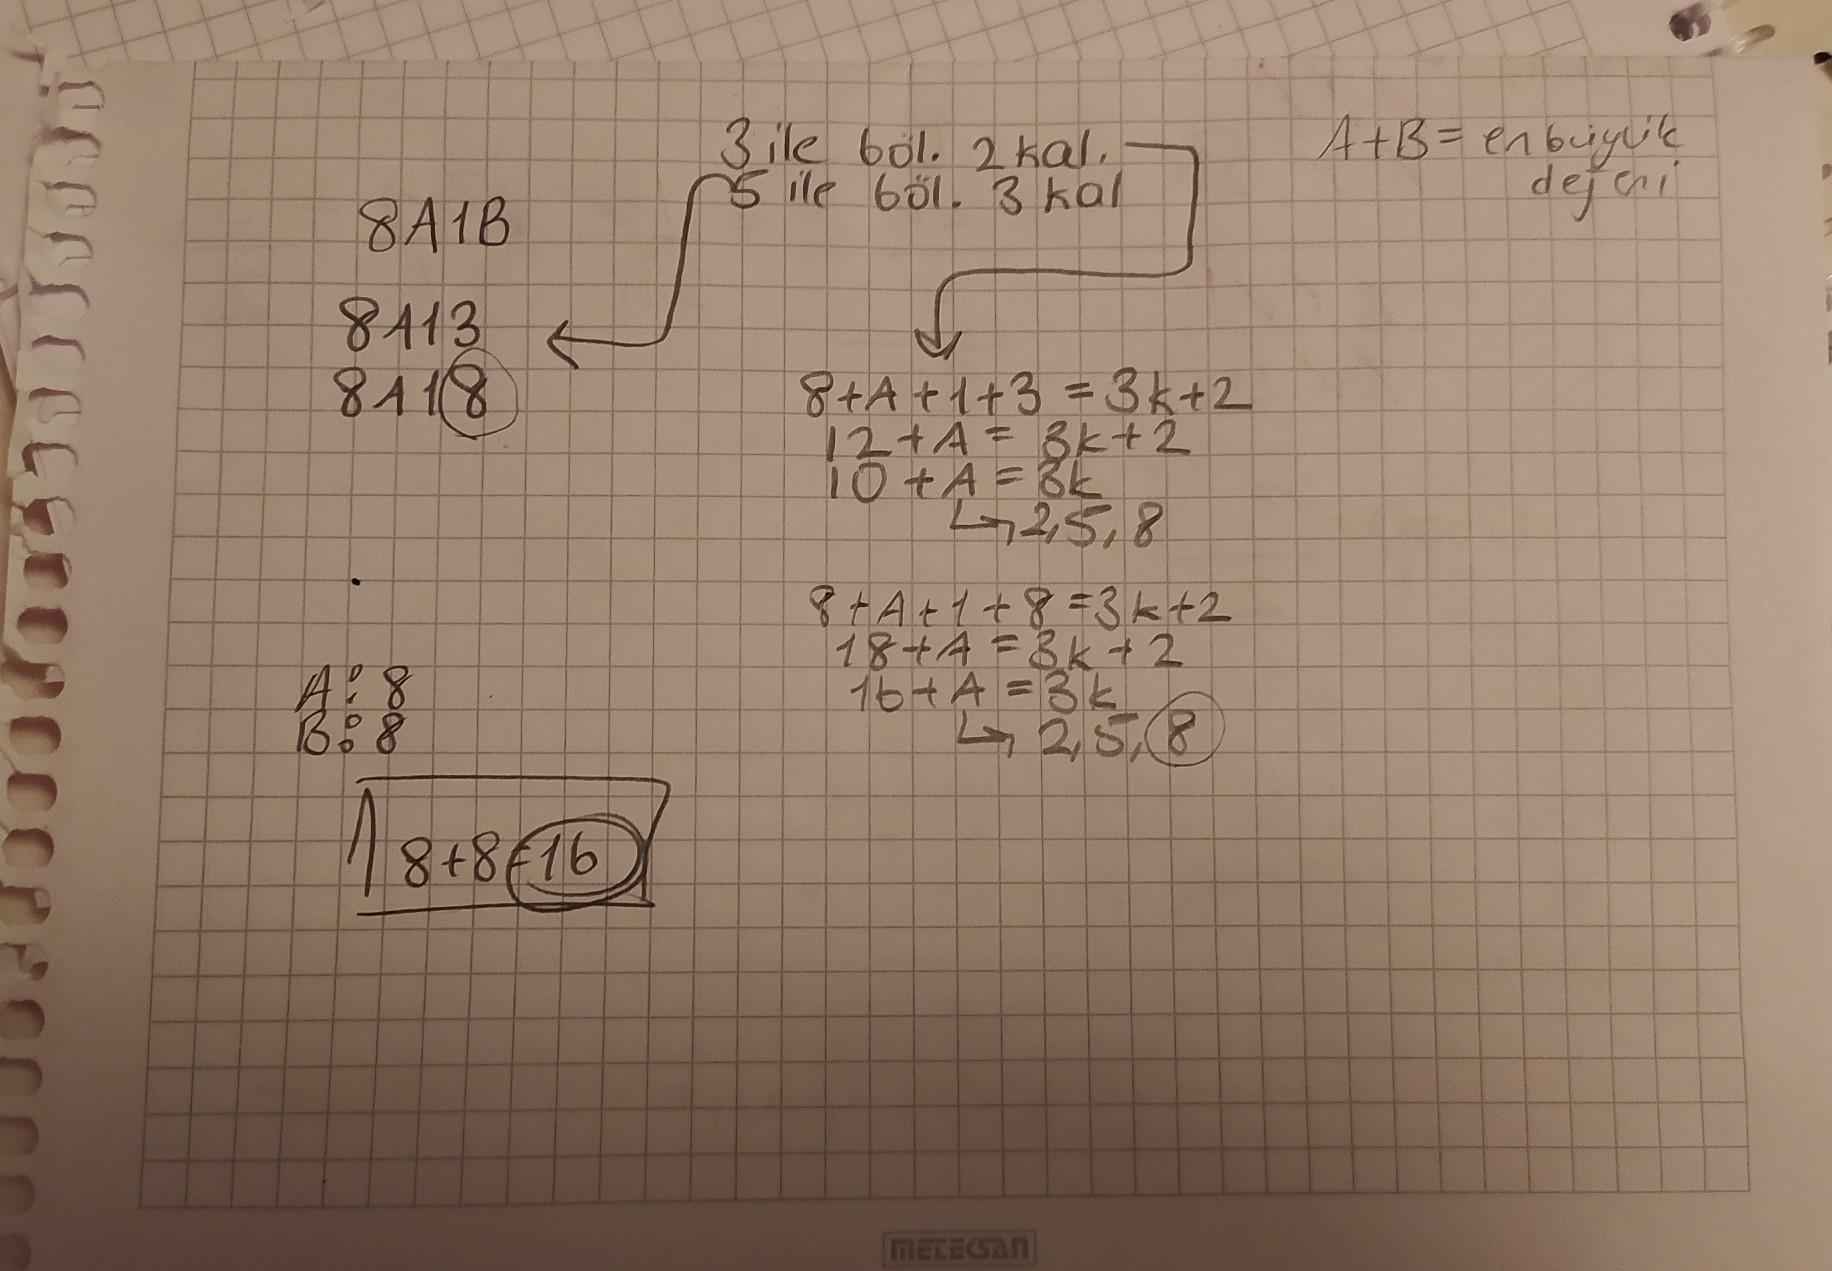 3 ile böl. 2 kal.
5 ile böl. 3 kal
A+B = en büyük
değeri
8A1B
8A13
8A18
8+A+1+3 = 3k+2
12+A = 3k+2
10+A = 3k
2,5,8
8+A+1+8=3k+2
18+A = 3k+2
16+A = 3k
2,5,8
A: 8
B: 8
8+8=16
METEKSAN